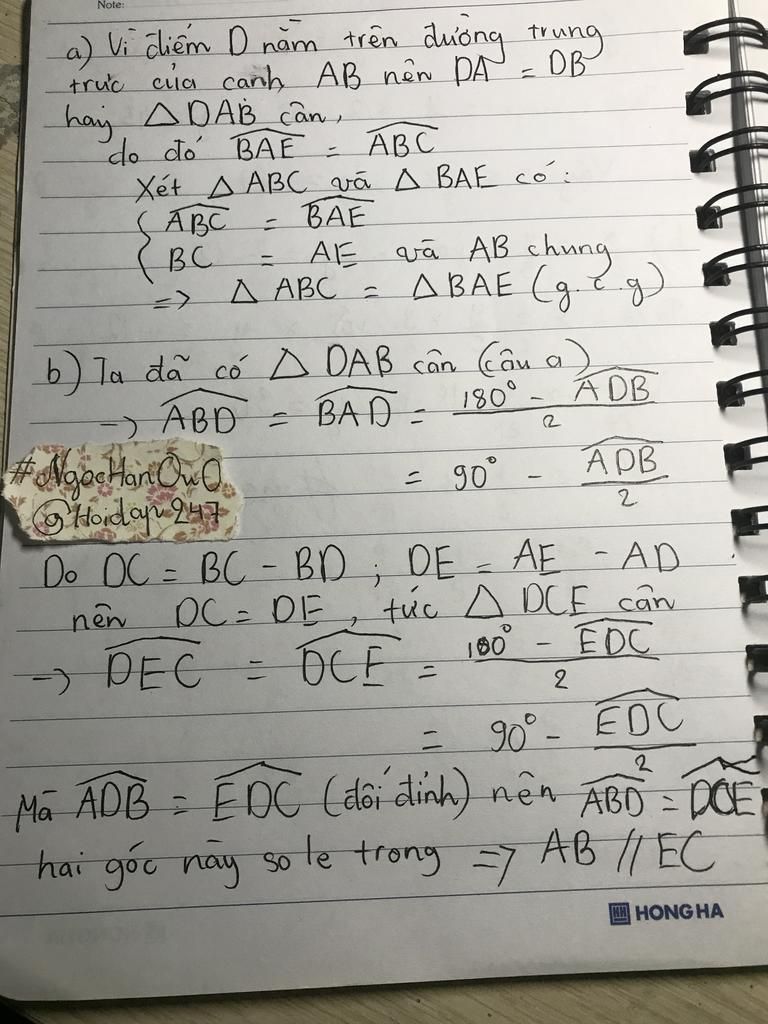 Note:
a) Vì điểm D nằm trên đường trung
trực của cạnh AB nên DA = DB
hay △DAB cân,
do đó \widehat{BAE} = \widehat{ABC}
Xét △ABC và △BAE có:
\widehat{ABC} = \widehat{BAE}
BC = AE và AB chung
=> △ABC = △BAE (g.c.g)
b) Ta đã có △DAB cân (câu a)
→ \widehat{ABD} = \widehat{BAD} = \frac{180° - \widehat{ADB}}{2}
= 90° - \frac{\widehat{ADB}}{2}
#NgocHanOwO
@Hoidap247
Do DC = BC - BD ; DE = AE - AD
nên DC = DE, tức △DCE cân
→ \widehat{DEC} = \widehat{DCE} = \frac{180° - \widehat{EDC}}{2}
= 90° - \frac{\widehat{EDC}}{2}
Mà \widehat{ADB} = \widehat{EDC} (đối đỉnh) nên \widehat{ABD} = \widehat{DCE}
hai góc này so le trong => AB // EC
HONG HA